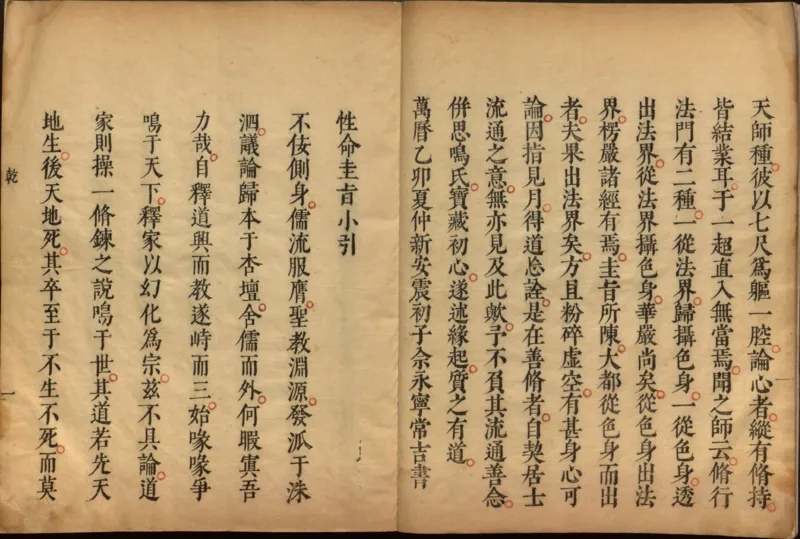 天師種彼以七尺爲軀一腔論心者縱有脩持
皆結業耳于一超直入無當焉聞之師云脩行
法門有二種一從法界歸攝色身一從色身透
出法界從法界攝色身華嚴尚矣從色身出法
界楞嚴諸經有焉圭旨所陳大都從色身而出
者夫果出法界矣方且粉碎虛空有甚身心可
論因指見月得道忩詮是在善脩者自契居士
流通之意無亦見及此歟予不負其流通善念
併思鳴氏寶藏初心遂述緣起質之有道
萬曆乙卯夏仲新安震初子余永寧常吉書
性命圭旨小引
不佞側身儒流服膺聖教淵源發泒于洙
泗議論歸本于杏壇舍儒而外何暇寘吾
力哉自釋道興而教遂峙而三始喙喙爭
鳴于天下釋家以幻化爲宗茲不具論道
家則操一脩鍊之說鳴于世其道若先天
地生後天地死其卒至于不生不死而莫
乾
一